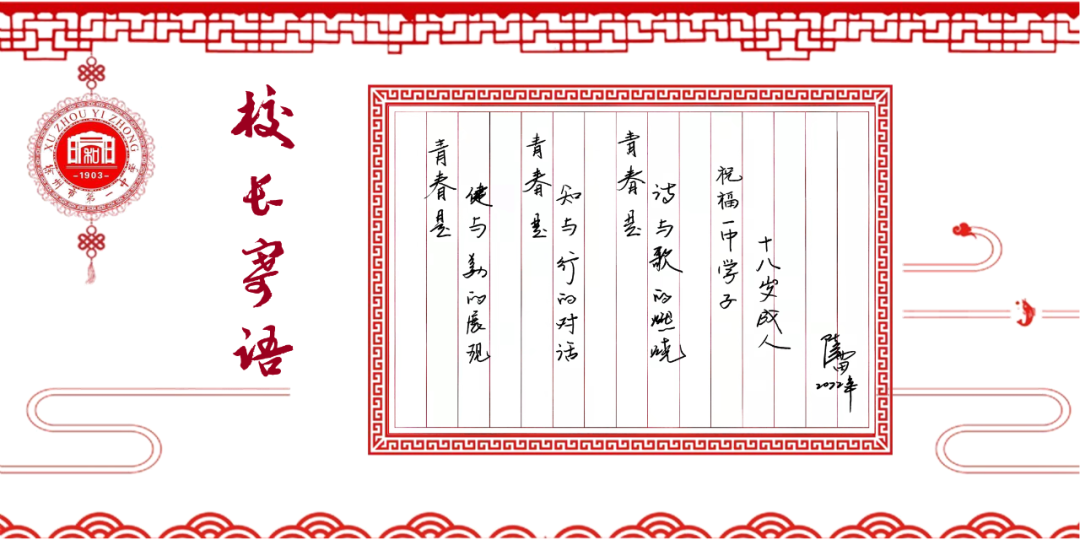 XU ZHOU YI ZHONG
1903
徐州市第一中学
校长寄语
青春是
健与美的展现
青春是
知与行的对话
青春是
诗与歌的燃烧
祝福一中学子
十八岁成人
陆雷
2022年